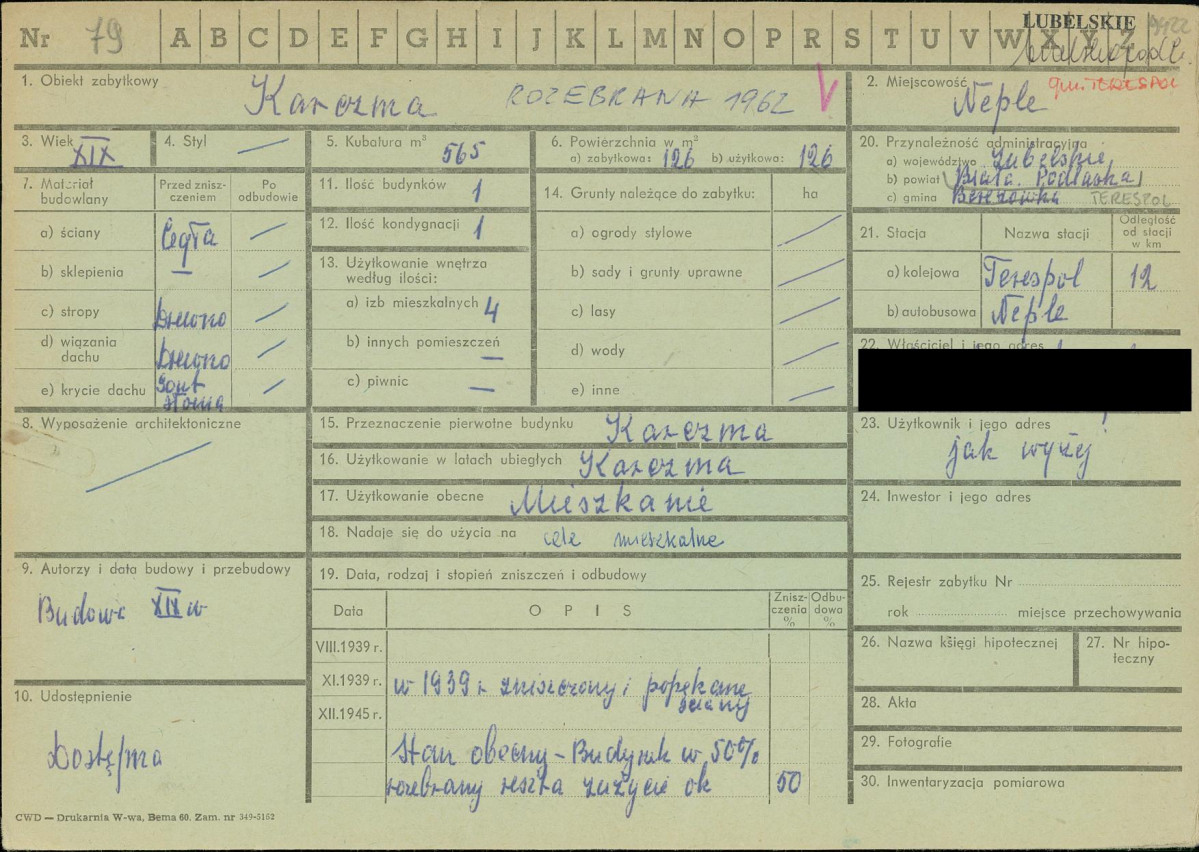 LUBELSKIE
Nr 79 A B C D E F G H I J K L M N O P R S T U V W X Y Z
1. Obiekt zabytkowy
Karczma ROZEBRANA 1962 V
2. Miejscowość gm. TERESPOL
Neple
3. Wiek
XIX
4. Styl —
5. Kubatura m³
565
6. Powierzchnia w m²
a) zabytkowa: 126 b) użytkowa: 126
7. Materiał budowlany
Przed zniszczeniem
Po odbudowie
a) ściany Cegła —
b) sklepienia — —
c) stropy drewno —
d) wiązania dachu drewno —
e) krycie dachu Gont słoma —
8. Wyposażenie architektoniczne
9. Autorzy i data budowy i przebudowy
Budowa XIX w
10. Udostępnienie
Dostępna
11. Ilość budynków 1
12. Ilość kondygnacji 1
13. Użytkowanie wnętrza
według ilości:
a) izb mieszkalnych 4
b) innych pomieszczeń —
c) piwnic —
14. Grunty należące do zabytku: ha
a) ogrody stylowe
b) sady i grunty uprawne
c) lasy
d) wody
e) inne
15. Przeznaczenie pierwotne budynku Karczma
16. Użytkowanie w latach ubiegłych Karczma
17. Użytkowanie obecne Mieszkanie
18. Nadaje się do użycia na cele mieszkalne
19. Data, rodzaj i stopień zniszczeń i odbudowy
Data OPIS Zniszczenia % Odbudowa %
VIII.1939 r.
XI.1939 r. w 1939 r zniszczony i popękane
ściany
XII.1945 r.
Stan obecny – Budynek w 50%
rozebrany reszta zużycie ok 50
20. Przynależność administracyjna
a) województwo Lubelskie
b) powiat Biała Podlaska
c) gmina Berezówka TERESPOL
21. Stacja Nazwa stacji Odległość od stacji w km
a) kolejowa Terespol 12
b) autobusowa Neple
22. Właściciel i jego adres
23. Użytkownik i jego adres
jak wyżej
24. Inwestor i jego adres
25. Rejestr zabytku Nr
rok miejsce przechowywania
26. Nazwa księgi hipotecznej
27. Nr hipoteczny
28. Akta
29. Fotografie
30. Inwentaryzacja pomiarowa
CWD — Drukarnia W-wa, Bema 60. Zam. nr 349-5162